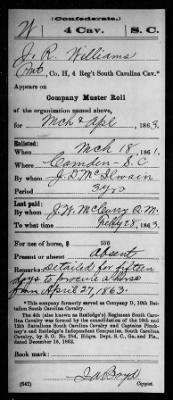 (Confederate.)
W 4 Cav. S. C.
J. R. Williams
Pvt, Co. H, 4 Reg't South Carolina Cav.*
Appears on
Company Muster Roll
of the organization named above,
for Mch & Apl, 1863.
Enlisted:
When Mch 18, 1861.
Where Camden S.C
By whom J. D. McIlwain
Period 3 yrs
Last paid:
By whom J. W. McCurry Q.M.
To what time Feby 28, 1863.
For use of horse, $
Present or absent Absent
Remarks: Detailed for fifteen
days to procure a horse
from April 27, 1863.
*This company formerly served as Company D, 10th Battalion South Carolina Cavalry.
The 4th (also known as Rutledge's) Regiment South Carolina Cavalry was formed by the consolidation of the 10th and 12th Battalions South Carolina Cavalry and Captains Pinckney's and Rutledge's Independent Companies, South Carolina Cavalry, by S. O. No. 254, Hdqrs. Dept. S. C., Ga. and Fla., dated December 16, 1862.
Book mark:
(642)
J A Boyd
Copyist.